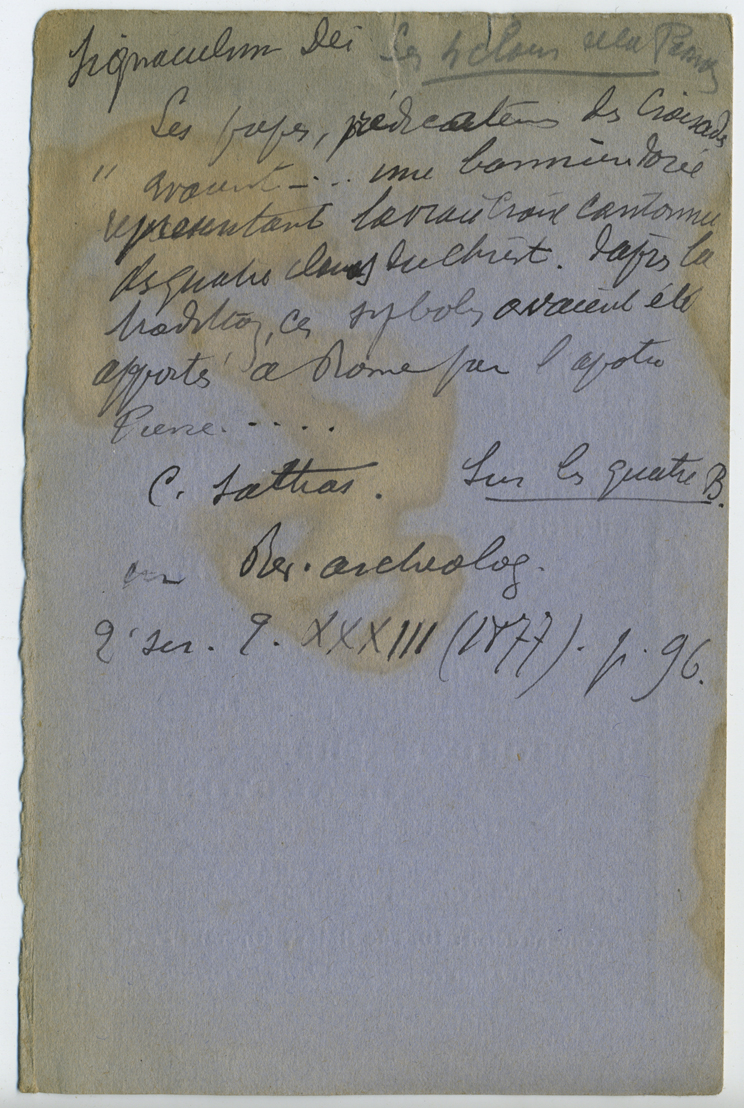 Signaculum Dei Les 4 clous de la Passion
Les papes, prédicateurs des Croisades
" avaient - . . . une bannière dorée
representant la vraie Croix cantonnée
des quatre clous du Christ. D'après la
tradition, ces symboles avaient été
apportés à Rome par l'apotre
Pierre . . . . .
C. Sathas. Sur les quatre B.
in Rev. archeolog.
2e ser. T. XXXIII (1877). p. 96.